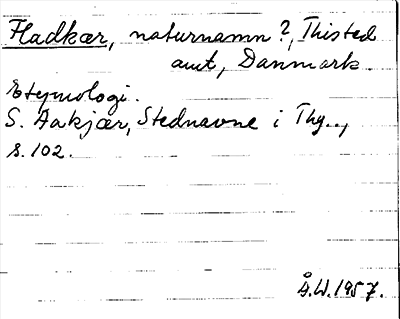 Hadkær, naturnamn?, Thisted
amt, Danmark.
Etymologi.
S. Aakjær, Stednavne i Thy..,
s. 102.
Å.W. 1957.